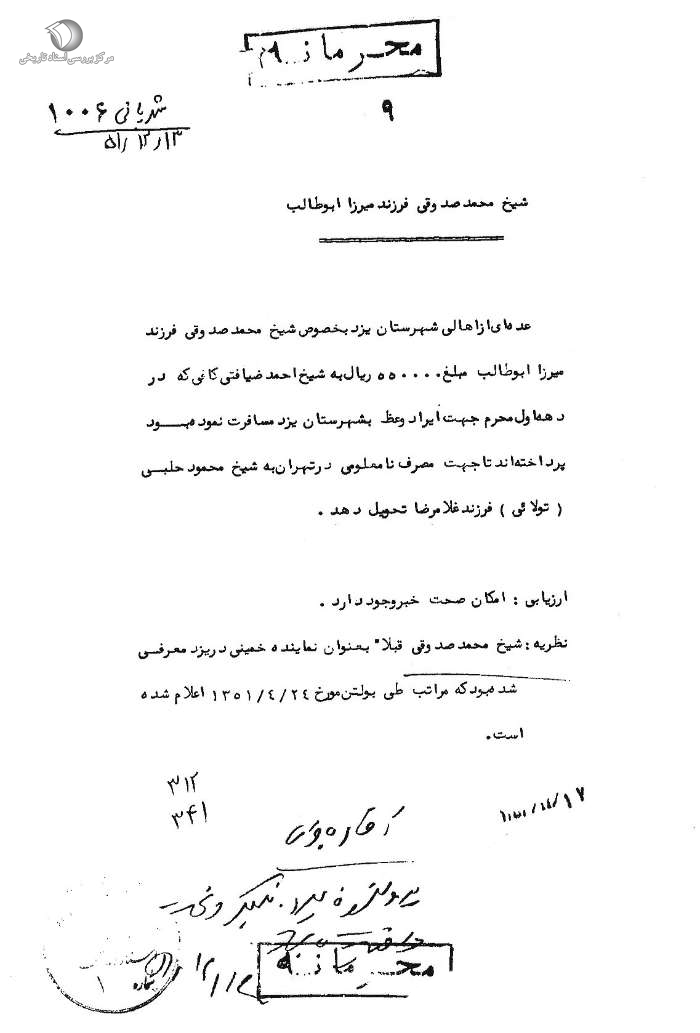 مرکز بررسی اسناد تاریخی
محرمانه
۹
شهربانی ۱۰۰۶
۵۱/۱۲/۱۳
شیخ محمد صدوقی فرزند میرزا ابوطالب
عده‌ای از اهالی شهرستان یزد بخصوص شیخ محمد صدوقی فرزند
میرزا ابوطالب مبلغ ۵۵۰۰۰۰ ریال به شیخ احمد ضیافتی کافی که در
دهه اول محرم جهت ایراد وعظ بشهرستان یزد مسافرت نموده بود
پرداخته‌اند تا جهت مصرف نامعلومی در تهران به شیخ محمود حلبی
( تولائی ) فرزند غلامرضا تحویل دهد .
ارزیابی : امکان صحت خبر وجود دارد .
نظریه : شیخ محمد صدوقی قبلا" بعنوان نماینده خمینی در یزد معرفی
شده بود که مراتب طی بولتن مورخ ۱۳۵۱/۴/۲۴ اعلام شده
است .
۳۱۲
۳۴۱
محرمانه
شماره ۱